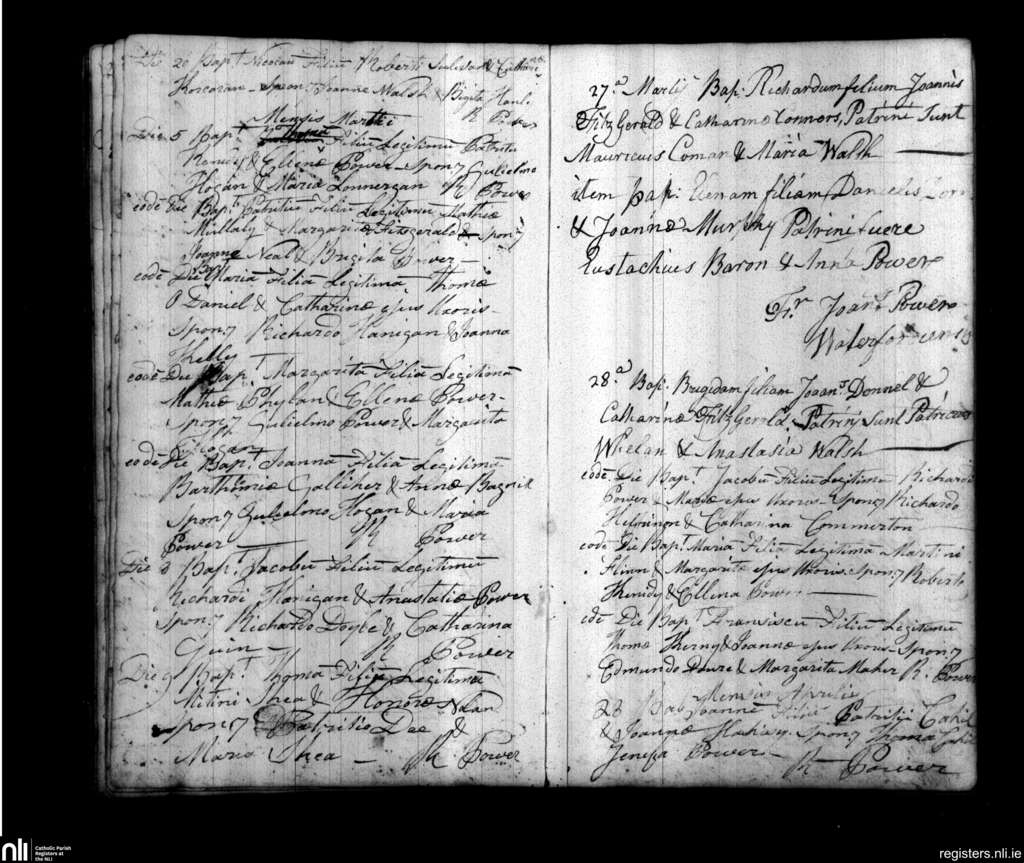 Die 20 Bapt Nicolau Filiu Roberti Sulivan & Cathari
Korcoran Spon Joanne Walsh & Brigita Hanl
R Power
Mensis Martii
Die 5 Bapt Filiu Legitimu Patritii
& Ellenæ Power Spong Gulielmo
Hogan & Maria Lonnergan R Power
eodē Die Bapt Patritiu Filiu Legitimu Mathiæ
Mullaly & Margaritæ Fitzgerald Spong
Joanne Neal & Brigita Power
eodē Die Bapt Maria Filia Legitima Thomæ
O Daniel & Catharinæ ejus Uxoris
Spong Richardo Hanigan & Joanna
Khelly
eodē Die Bapt Margarita Filia Legitimā
Mathiæ Phylan & Ellenæ Power
Spong Gulielmo Power & Margarita
Hogan
eodē Die Bapt Joanna Filia Legitimā
Bartholmiæ Galliher & Annæ Bagnil
Spong Gulielmo Hogan & Maria
Power R Power
Die 8 Bapt Jacobu Filiu Legitimu
Richardi Flanigan & Anastatiæ Power
Spong Richardo Doyle & Catharina
Guin R Power
Die 9 Bapt Thoma Filiu Legitimū
Shea & Honoræ Nolan
Spong Patritio Dee &
Maria Shea R Power
27.a Martii Bap: Richardum filium Joannis
FitzGerald & Catharinæ Connors, Patrini Sunt
Mauricius Coman & Maria Walsh
item bap: Elenam filiam Danielis
& Joannæ Murphy Patrini fuere
Eustachius Baron & Anna Power
Fr Joans Power
Waterfordiensis
28.a Bap: Brigidam filiam Joans Donnel &
Catharinæ FitzGerald, Patrini Sunt Patricius
Whelan & Anastasia Walsh
eodē Die Bapt Jacobu Filiu Legitimu Richardi
Power & Mariæ ejus Uxoris Spong Richardo
Heffrinon & Catharina Commerton
eodē Die Bapt Maria Filia Legitimā Martini
Flinn & Margaritæ ejus Uxoris Spong Roberto
& Ellina Power
edē Die Bapt Franciscu Filiu Legitimu
Thomæ & Joannæ ejus Uxoris Spong
Edmundo Powre & Margarita Maher R. Power
Mensis Aprilis
23 Bap Joanne Filiu Patritii Cahil
& Joannæ Spong Thoma
Power R Power
nli
Catholic Parish
Registers at
the NLI
registers.nli.ie